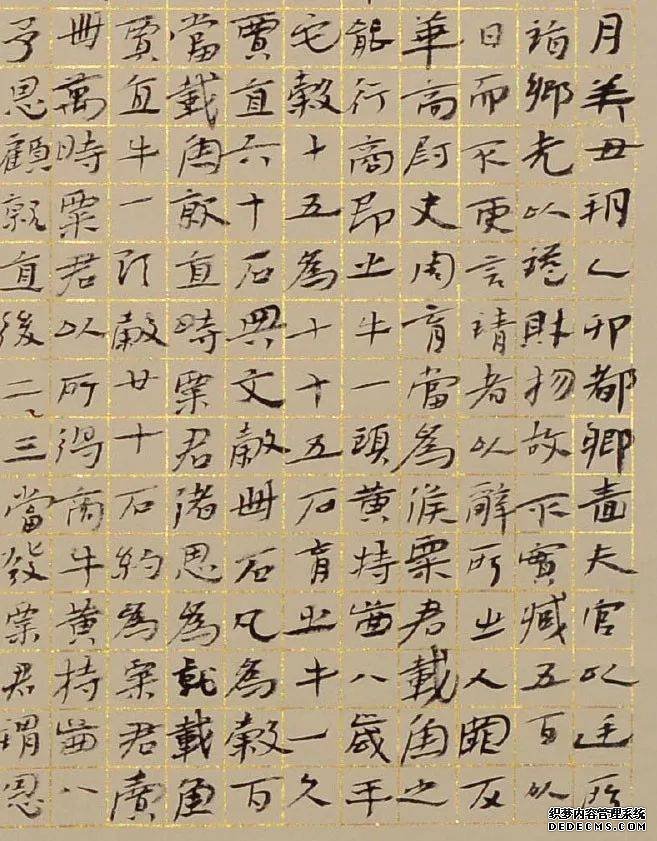 月癸丑朔乙卯都鄉嗇夫官以廷所
詣鄉先以證財物故不實臧五百以
日而不更言請者以辭所出入罪反
華商尉史周育當為候粟君載魚之
能行商即出牛一頭黃特齒八歲平
它穀十五為十十五石育出牛一久
賈直六十石與文穀卌石凡為穀百
當載魚就直時粟君借恩為就載魚
賈直牛一頭穀廿十石約為粟君賣
卌萬時粟君以所得商牛黃特齒八
予恩顧就直後二、三當發粟君謂恩
织梦内容管理系统
DEDECMS.COM